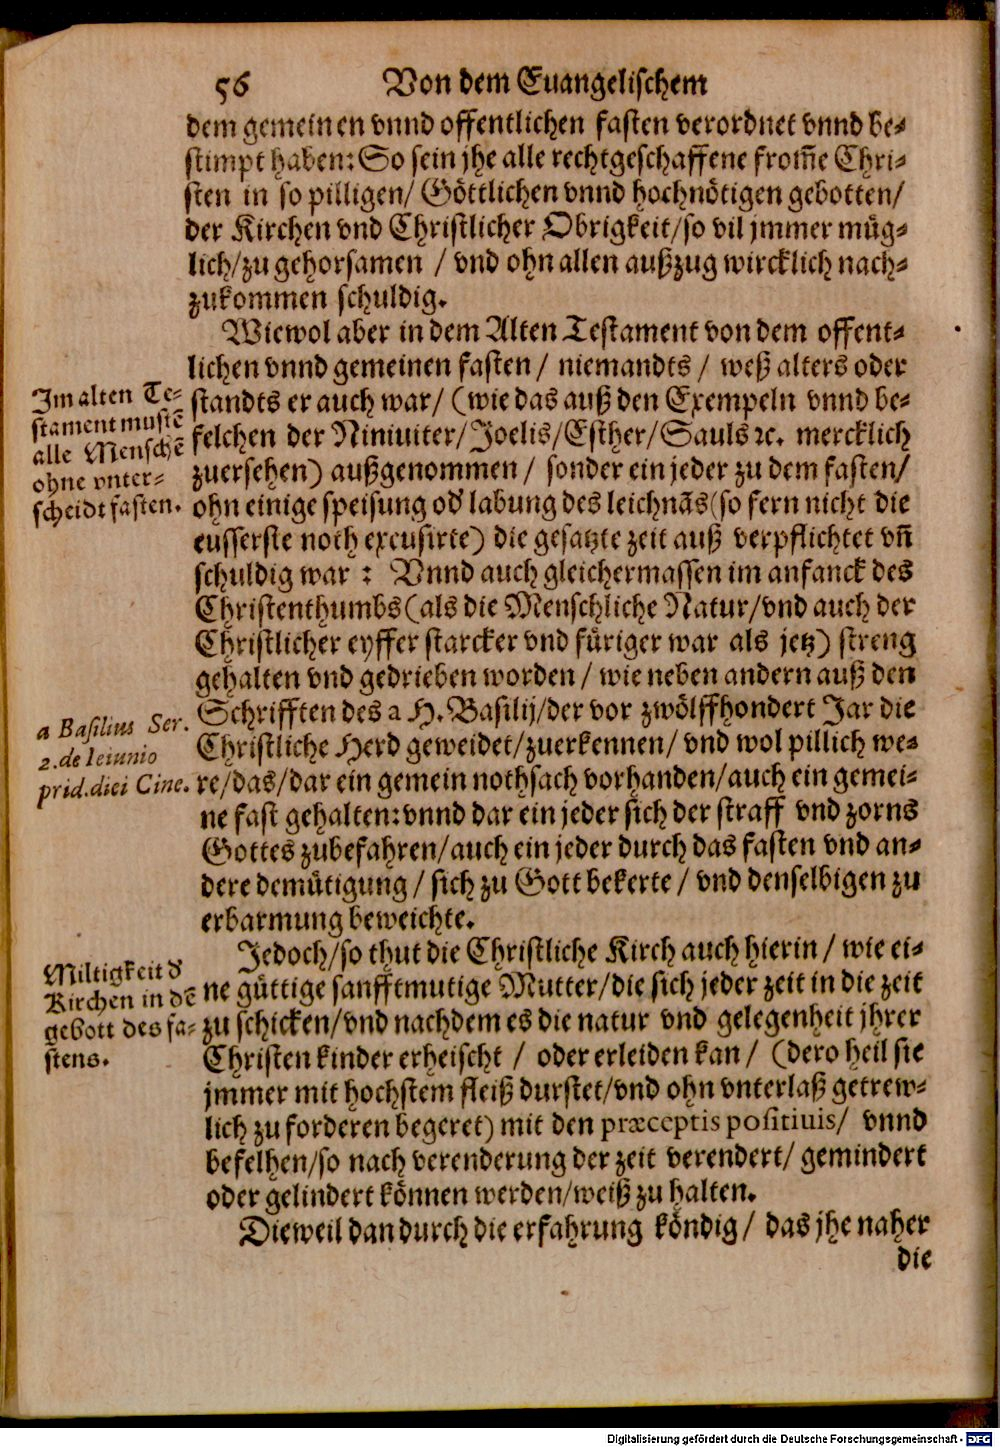 56 Von dem Euangelischem
dem gemeinen vnnd offentlichen fasten verordnet vnnd be-
stimpt haben: So sein jhe alle rechtgeschaffene from̃e Chri-
sten in so pilligen/ Göttlichen vnnd hochnötigen gebotten/
der Kirchen vnd Christlicher Obrigkeit/so vil jmmer müg-
lich/zu gehorsamen / vnd ohn allen außzug wircklich nach-
zukommen schuldig.
Wiewol aber in dem Alten Testament von dem offent-
lichen vnnd gemeinen fasten / niemandts / weß alters oder
standts er auch war/ (wie das auß den Exempeln vnnd be-
felchen der Niniuiter/Joelis/Esther/Sauls ꝛc. mercklich
zuersehen) außgenommen / sonder ein jeder zu dem fasten/
ohn einige speisung od̛ labung des leichnãs(so fern nicht die
eusserste noth excusirte) die gesatzte zeit auß verpflichtet vñ
schuldig war : Vnnd auch gleichermassen im anfanck des
Christenthumbs(als die Menschliche Natur/vnd auch der
Christlicher eyffer starcker vnd füriger war als jetz) streng
gehalten vnd gedrieben worden / wie neben andern auß den
Schrifften des a H. Basilij/der vor zwölffhondert Jar die
Christliche Herd geweidet/zuerkennen/ vnd wol pillich we-
re/das/dar ein gemein nothsach vorhanden/auch ein gemei-
ne fast gehalten:vnnd dar ein jeder sich der straff vnd zorns
Gottes zubefahren/auch ein jeder durch das fasten vnd an-
dere demütigung / sich zu Gott bekerte / vnd denselbigen zu
erbarmung beweichte.
Jedoch/so thut die Christliche Kirch auch hierin / wie ei-
ne güttige sanfftmutige Mutter/die sich jeder zeit in die zeit
zu schicken/vnd nachdem es die natur vnd gelegenheit jhrer
Christen kinder erheischt / oder erleiden kan / (dero heil sie
jmmer mit hochstem fleiß durstet/vnd ohn vnterlaß getrew-
lich zu forderen begeret) mit den præceptis positiuis/ vnnd
befelhen/so nach verenderung der zeit verendert/ gemindert
oder gelindert können werden/weiß zu halten.
Dieweil dan durch die erfahrung köndig / das jhe naher
die
Im alten Te-
stament mustẽ
alle Menschẽ
ohne vnter-
scheidt fasten.
a Basilius Ser.
2. de Ieiunio
prid.diei Cine.
Miltigkeit d̛
Kirchen in dẽ
gebott des fa-
stens.
Digitalisierung gefördert durch die Deutsche Forschungsgemeinschaft - DFG